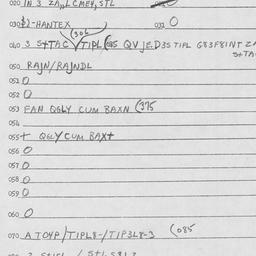 020 IN 3 ZA,,LCMEH,STL
030 -HANTEX 031 O
(506
040 3 S+TAC TIPL (085 QVJED3STIPL G83F81NT ZA
S+TA
050 RAJN/RAJNDL
051 O
052 O
053 FAN QGLY CUM BAXN (375
054
055 + QGLYCUM BAX+
056 O
057 O
058 O
059 O
060 O
070 A TO4P/TIPL8-/TIP3L8-3 (085